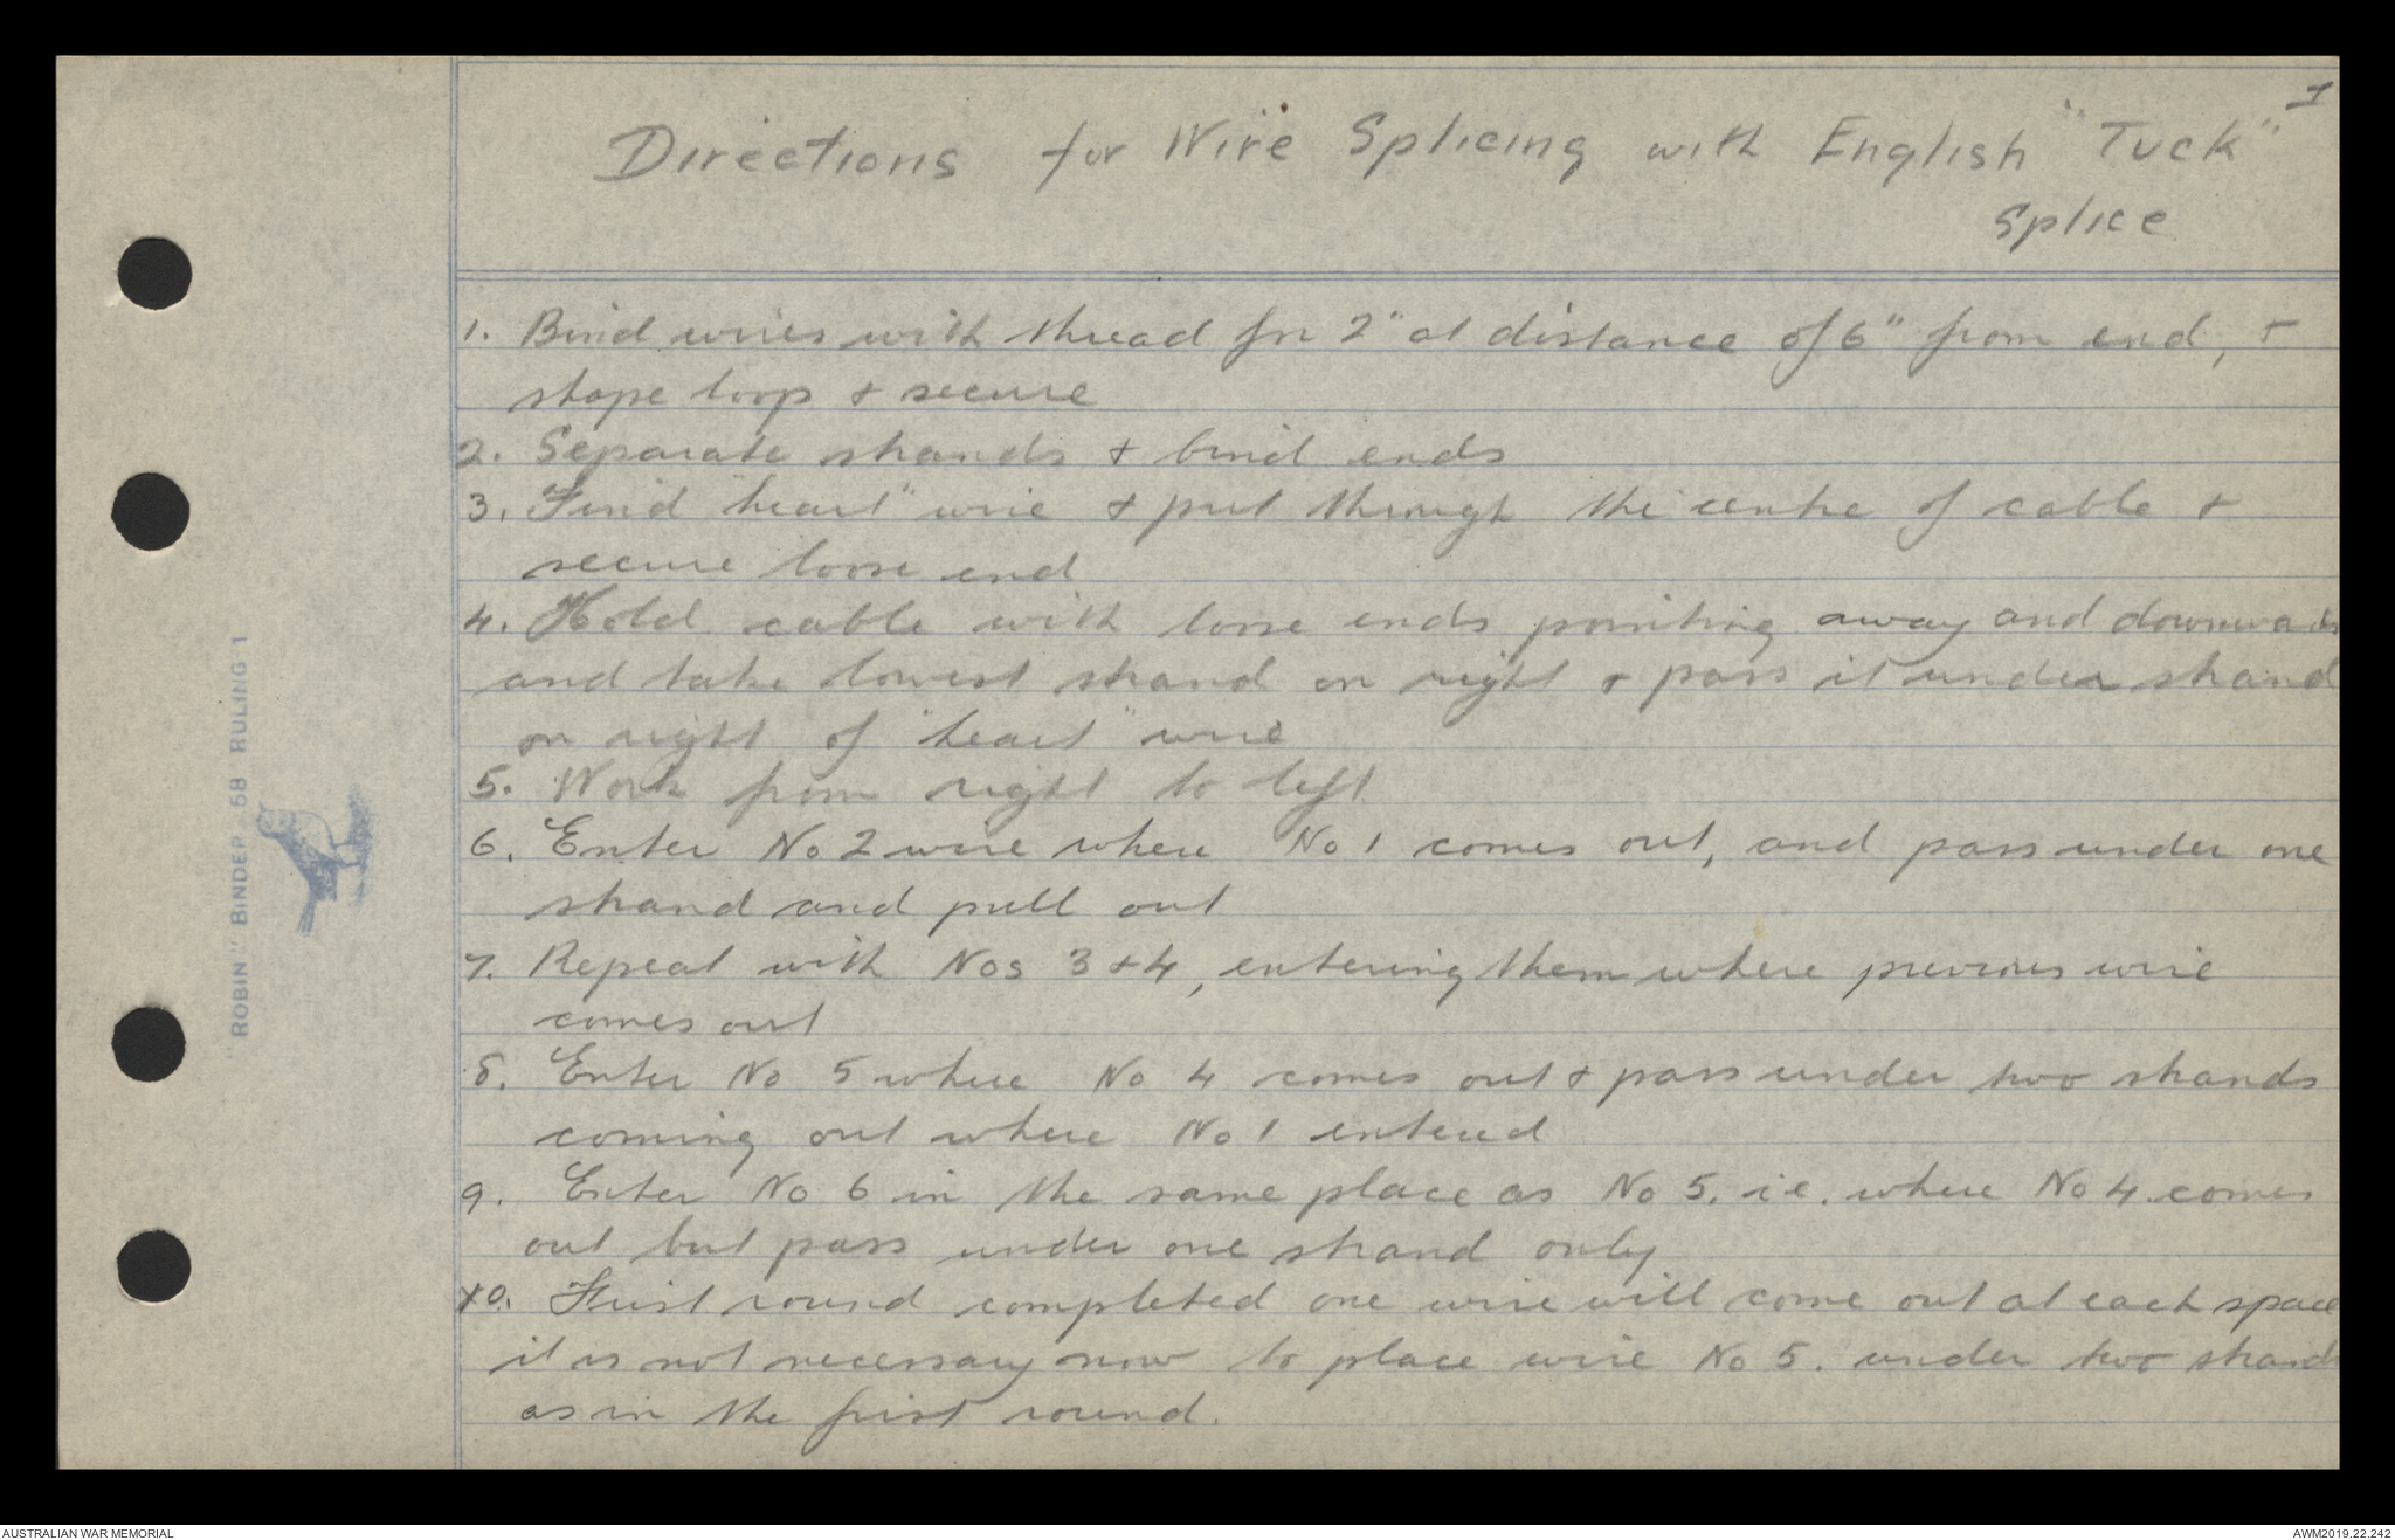 1
Directions for Wire Splicing with English "Tuck"
Splice
1. Bind wires with thread for 2" at distance of 6" from end, +
shape loop + secure
2. Separate strands + bind ends
3. Find "heart" wire + put through the centre of cable +
secure loose end
4. Hold cable with loose ends pointing away and downwards
and take lowest strand on right + pass it under strand
on right of "heart" wire
5. Work from right to left
6. Enter No 2 wire where No 1 comes out, and pass under one
strand and pull out
7. Repeat with Nos 3 + 4, entering them where previous wire
comes out
8. Enter No 5 where No 4 comes out + pass under two strands
coming out where No 1 entered
9. Enter No 6 in the same place as No 5. i.e. where No 4 comes
out but pass under one strand only
10. First round completed one wire will come out at each space
it is not necessary now to place wire No 5. under two strands
as in the first round.
"ROBIN" BINDER 58 RULING 1
AUSTRALIAN WAR MEMORIAL
AWM2019.22.242